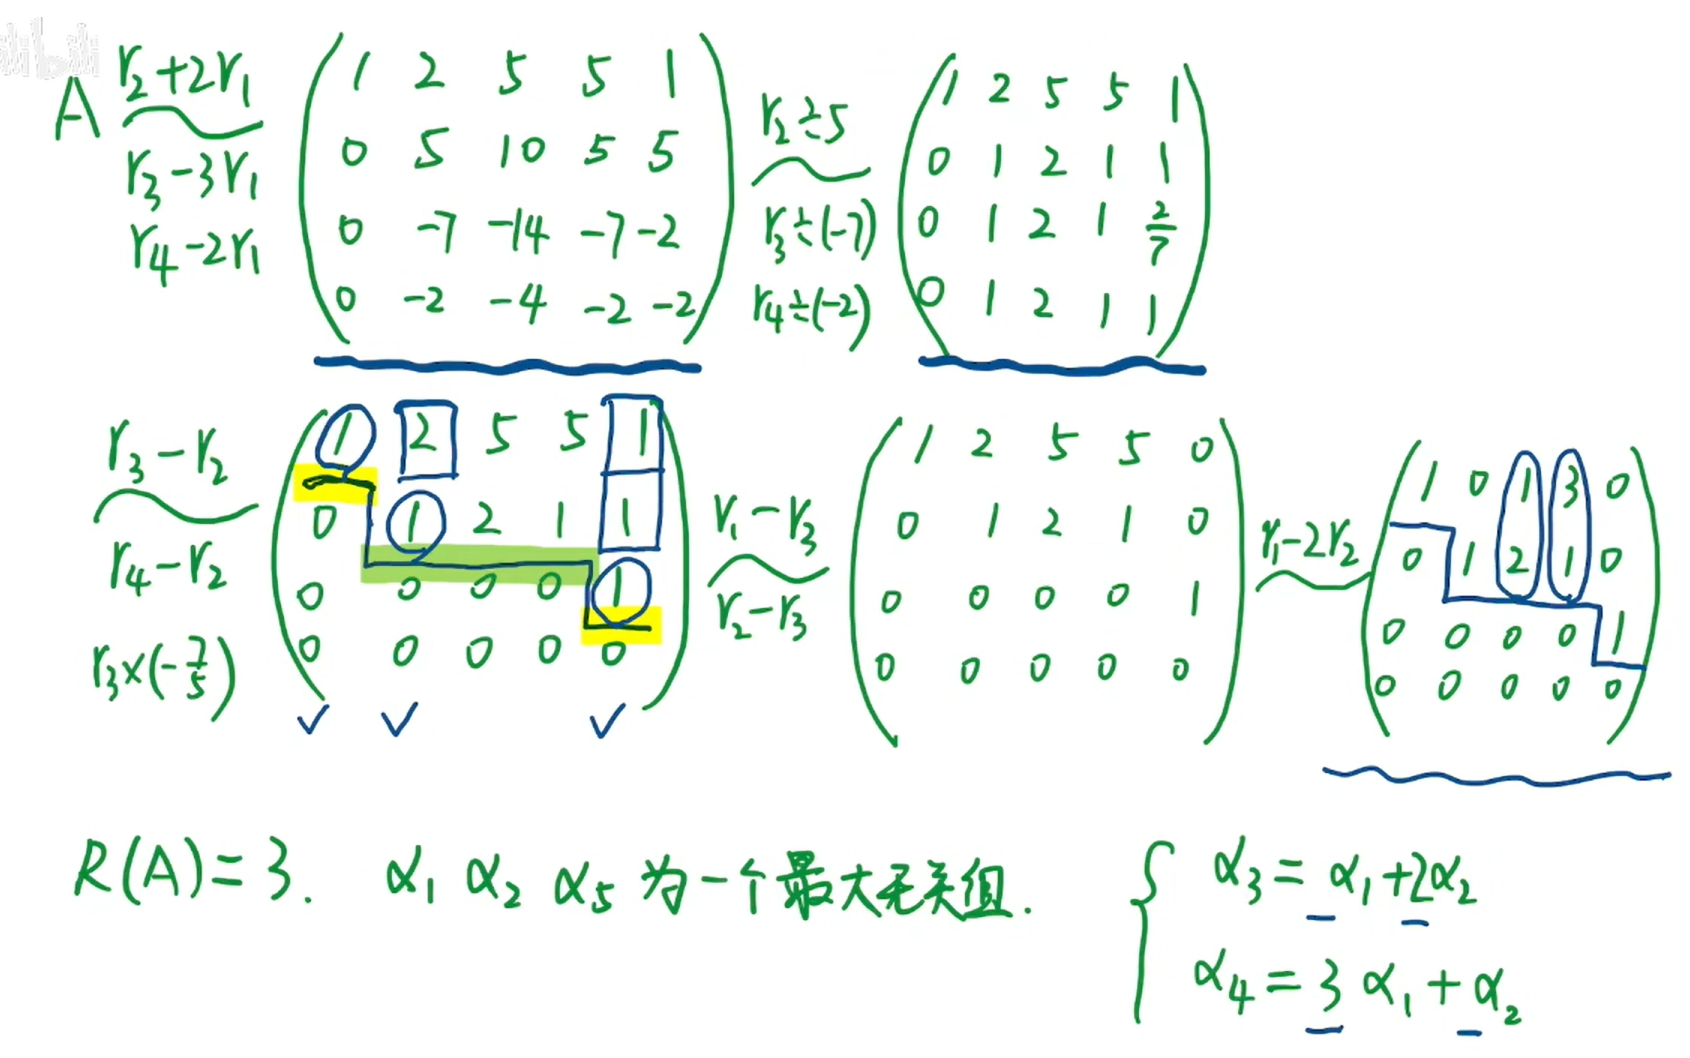 bilibili
A r₂+2r₁ r₃-3r₁ r₄-2r₁
1 2 5 5 1
0 5 10 5 5
0 -7 -14 -7 -2
0 -2 -4 -2 -2
r₂÷5 r₃÷(-7) r₄÷(-2)
1 2 5 5 1
0 1 2 1 1
0 1 2 1 2/7
0 1 2 1 1
r₃-r₂ r₄-r₂ r₃×(-7/5)
1 2 5 5 1
0 1 2 1 1
0 0 0 0 1
0 0 0 0 0
✓ ✓ ✓
r₁-r₃ r₂-r₃
1 2 5 5 0
0 1 2 1 0
0 0 0 0 1
0 0 0 0 0
r₁-2r₂
1 0 1 3 0
0 1 2 1 0
0 0 0 0 1
0 0 0 0 0
R(A)=3. α₁ α₂ α₅ 为一个最大无关组.
α₃=α₁+2α₂
α₄=3α₁+α₂